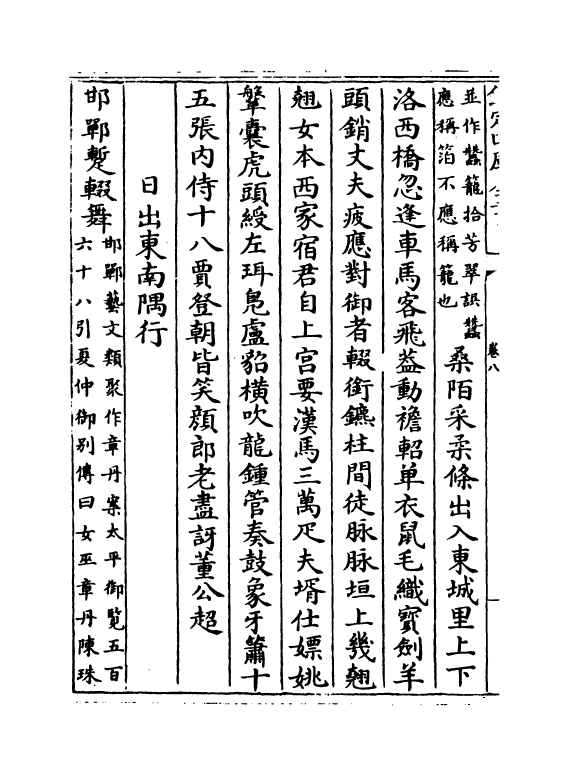 並作蠶籠拾芳翠誤蠶
應稱箔不應稱籠也
桑陌采柔條出入東城里上下
洛西橋忽逢車馬客飛葢動襜軺单衣鼠毛織寳劍羊
頭銷丈夫疲應對御者輟銜鑣柱間徒脉脉垣上幾翹
翹女本西家宿君自上宫要漢馬三萬疋夫壻仕嫖姚
鞶囊虎頭綬左珥鳬盧貂橫吹龍鍾管奏鼓象牙簫十
五張内侍十八賈登朝皆笑顔郎老盡訝董公超
日出東南隅行
邯鄲蹔輟舞
邯鄲藝文類聚作章丹案太平御覽五百
六十八引夏仲御别傳曰女巫章丹陳珠
卷八